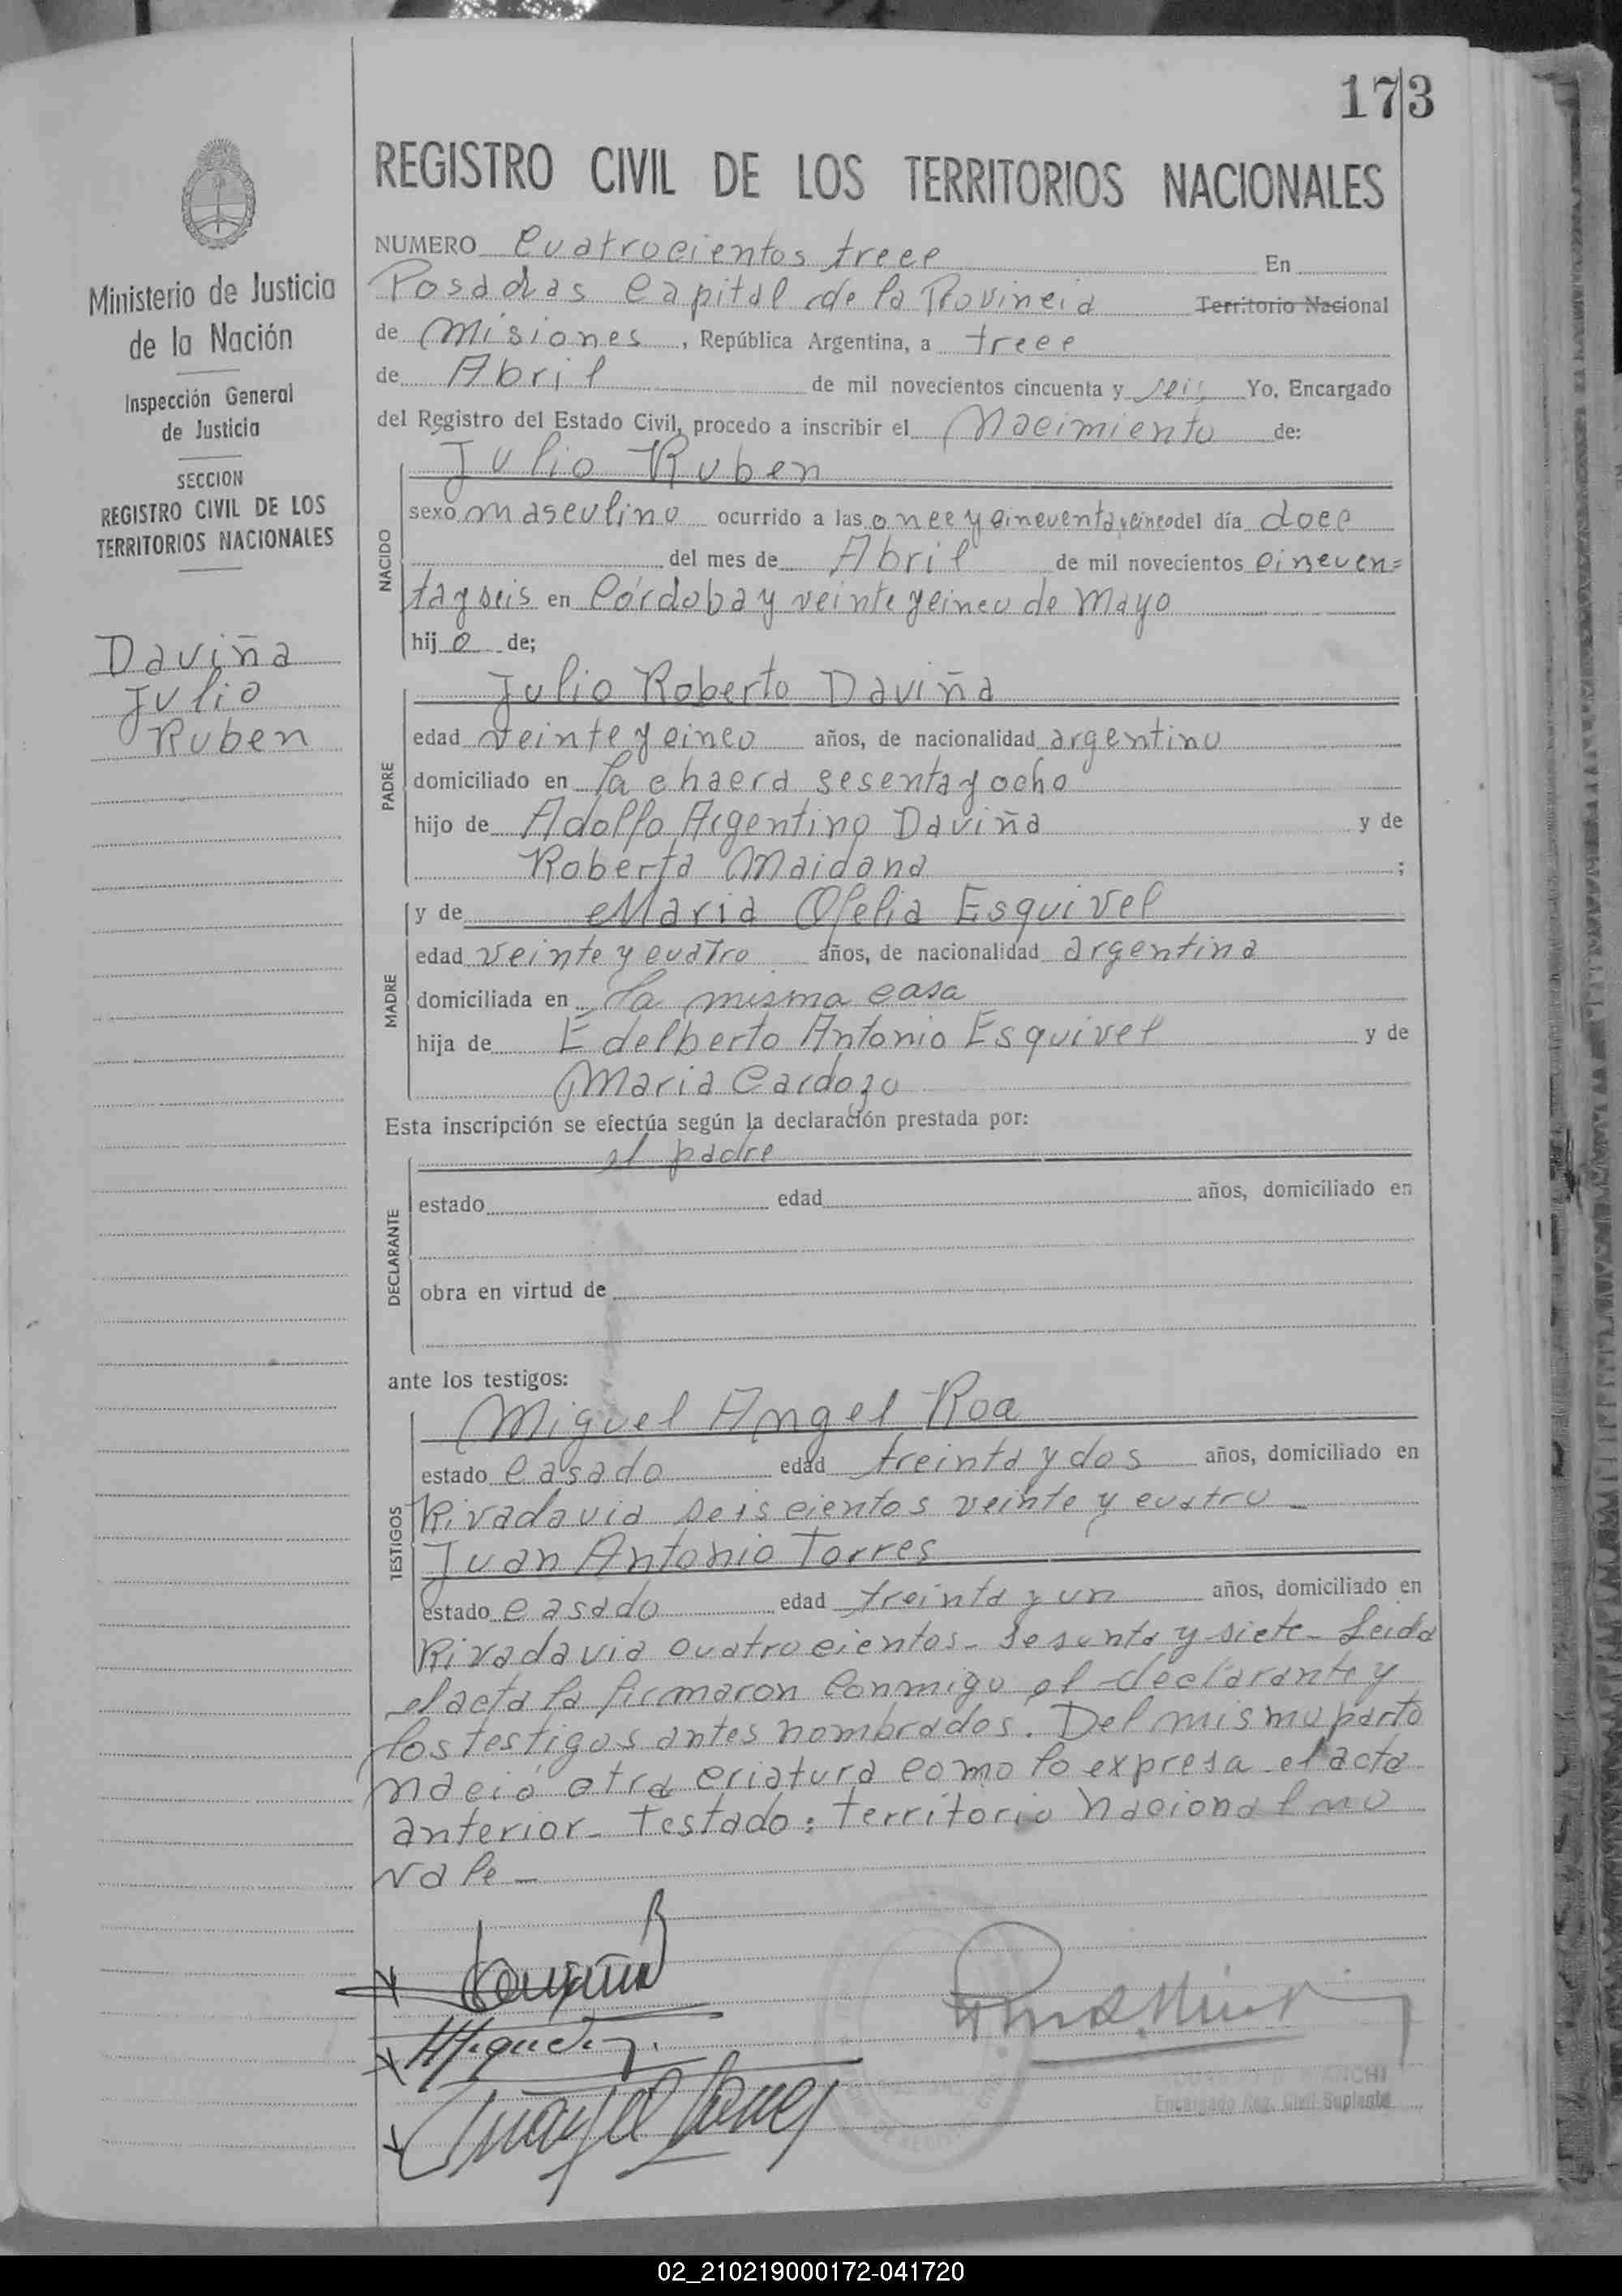 173
REGISTRO CIVIL DE LOS TERRITORIOS NACIONALES
Ministerio de Justicia
de la Nación
Inspección General
de Justicia
SECCION
REGISTRO CIVIL DE LOS
TERRITORIOS NACIONALES
Daviña
Julio
Ruben
NUMERO Cuatrocientos trece En
Posadas Capital de la Provincia Territorio Nacional
de Misiones, República Argentina, a trece
de Abril de mil novecientos cincuenta y seis Yo, Encargado
del Registro del Estado Civil, procedo a inscribir el Nacimiento de:
NACIDO
Julio Ruben
sexo masculino ocurrido a las once y cincuenta y cinco del día doce
del mes de Abril de mil novecientos cincuen=
ta y seis en Córdoba y veinte y cinco de Mayo
hijo de;
PADRE
Julio Roberto Daviña
edad veinte y cinco años, de nacionalidad argentino
domiciliado en la chacra sesenta y ocho
hijo de Adolfo Argentino Daviña y de
Roberta Maidana ;
MADRE
y de Maria Ofelia Esquivel
edad veinte y cuatro años, de nacionalidad argentina
domiciliada en la misma casa
hija de Edelberto Antonio Esquivel y de
Maria Cardozo
Esta inscripción se efectúa según la declaración prestada por:
DECLARANTE
el padre
estado edad años, domiciliado en
obra en virtud de
ante los testigos:
TESTIGOS
Miguel Angel Roa
estado casado edad treinta y dos años, domiciliado en
Rivadavia seiscientos veinte y cuatro -
Juan Antonio Torres
estado casado edad treinta y un años, domiciliado en
Rivadavia cuatrocientos - sesenta y siete - Leida
el acta la firmaron conmigo el declarante y
los testigos antes nombrados. Del mismo parto
nació otra criatura como lo expresa el acta
anterior - Testado: territorio nacional no
vale -
Encargado Reg. Civil Suplente
02_210219000172-041720